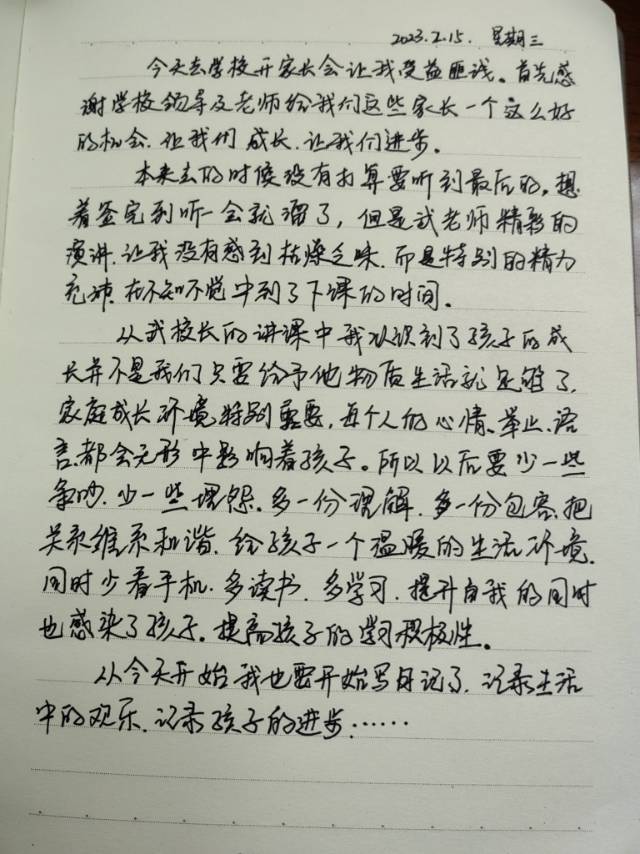 2023.2.15. 星期三
今天去学校开家长会让我受益匪浅。首先感
谢学校领导及老师给我们这些家长一个这么好
的机会.让我们成长.让我们进步。
本来去的时候没有打算要听到最后的。想
着签完到听一会就溜了，但是武老师精彩的
演讲.让我没有感到枯燥乏味.而是特别的精力
充沛.在不知不觉中到了下课的时间。
从武校长的讲课中我认识到了孩子的成
长并不是我们只要给予他物质生活就足够了.
家庭成长环境特别重要，每个人的心情.举止.语
言.都会无形中影响着孩子。所以以后要少一些
争吵.少一些埋怨。多一份理解.多一份包容.把
关系维系和谐.给孩子一个温暖的生活环境.
同时少看手机.多读书.多学习.提升自我的同时
也感染了孩子。提高孩子的学习积极性。
从今天开始我也要开始写日记了.记录生活
中的欢乐.记录孩子的进步……